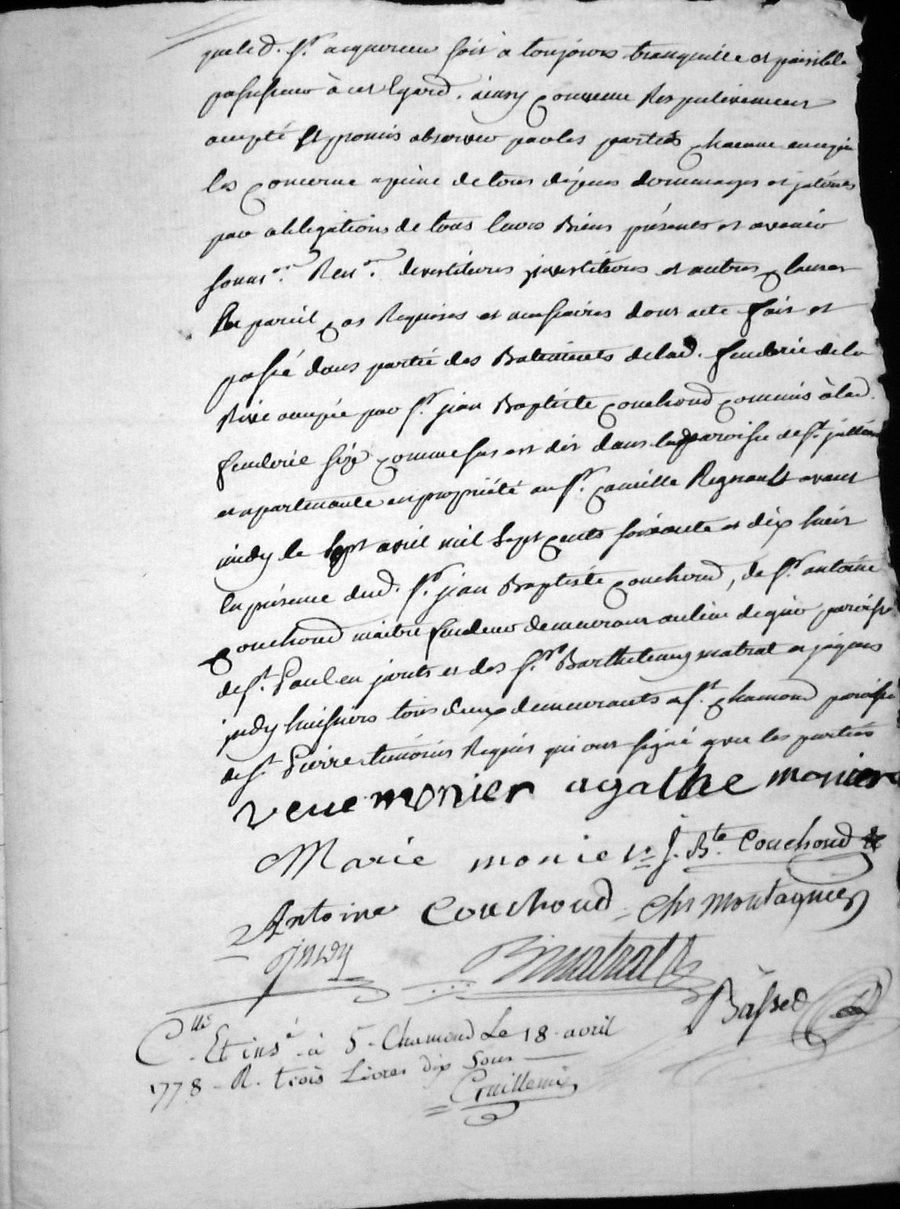 que le d. Sr. acquereur soit a toujours tranquille et paisible
possesseur à cet Egard. ainsy Convenu Respectivement
accepté Et promis observer par les parties chacune
les Concerne a peine de tous depens dommages et
par obligations de tous leurs Biens présents et avenir
soumons. Renons. devestitures investitures et autres Clauses
En pareil Cas Requises et necessaires dont acte fait et
passé dans partie des Batiments de lad. fenderie de la
Rive occupée par Sr. jean Baptiste Couchoud Commis à lad.
fenderie size Comme sus est dit dans la paroisse de St. jullien
et apartenante en propriété au Sr. Camille Regnault avant
midy le sept avril mil sept Cents soixante et dix huit
En présence dud. Sr. jean Baptiste Couchoud, de Sr. antoine
Couchoud maitre fendeur demeurant au lieu de paroisse
de St. Paul en jarets et des Srs. Barthelemy matrat et jaques
judy huissiers tous deux demeurants a St. Chamond paroisse
de St. Pierre temoins Requis qui ont signé avec les parties
veuemonier agathe monier
Marie monier J. Bte. Couchoud
Antoine Couchoud Montagnier
judy Bmatrat
Bassed
Clle. Et insé. à S. Chamond Le 18 avril
1778 R. trois Livres dix sous